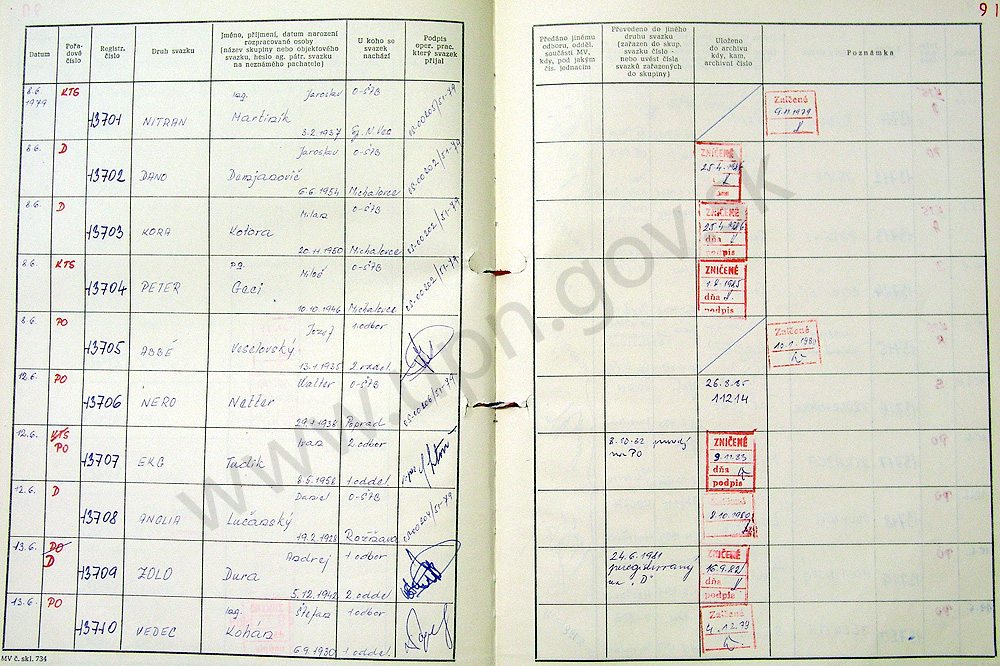 91
Datum
Pořa-
dové
číslo
Registr.
číslo
Druh svazku
Jméno, příjmení, datum narození
rozpracované osoby
(název skupiny nebo objektového
svazku, heslo ag. pátr. svazku
na neznámého pachatele)
U koho se
svazek
nachází
Podpis
oper. prac.
který svazek
přijal
Předáno jinému
odboru, odděl.
součásti MV,
kdy, pod jakým
čís. jednacím
Převedeno do jiného
druhu svazku
(zařazen do skup.
svazku číslo -
nebo uvést čísla
svazků zařazených
do skupiny)
Uloženo
do archivu
kdy, kam,
archivní číslo
Poznámka
8.6 1979 KTS 13701 NITRAN ing. Jaroslav Martinik 3.2.1937 O-ŠtB
Zničené
9.11.1979
8.6. D 13702 DANO Jaroslav Demjanovič 6.6.1954 O-ŠtB Michalovce
ZNIČENÉ
25.4.1986
8.6. D 13703 KORA Milan Kotora 20.11.1950 O-ŠtB Michalovce
ZNIČENÉ
25.4.1986
dňa
podpis
8.6. KTS 13704 PETER Miloš Gaci 10.10.1946 O-ŠtB Michalovce
ZNIČENÉ
1.8.1985
dňa
podpis
8.6. PO 13705 ABBÉ Jozef Veselovský 13.1.1935 1.odbor 2.oddel.
Zničené
12.6. PO 13706 NERO Walter Netter 29.1.1938 O-ŠtB Poprad
26.8.85
11214
12.6. KTS PO 13707 EKG Ivan Tudík 8.5.1956 2.odbor 1.oddel.
na PO
ZNIČENÉ
9.11.83
dňa
podpis
12.6. D 13708 ANGLIA Daniel Lučanský 19.2.1928 O-ŠtB Rožňava
8.10.1980
13.6. PO D 13709 ZOLO Andrej Dura 5.12.1942 1.odbor 2.oddel.
24.6.1981
preregistrovaný
na "D"
ZNIČENÉ
16.9.82
dňa
podpis
13.6. PO 13710 VEDEC ing. Štefan Kohán 6.9.1930 1.odbor 1.oddel.
Zničené
4.12.79
MV č. skl. 734
www.upn.gov.sk